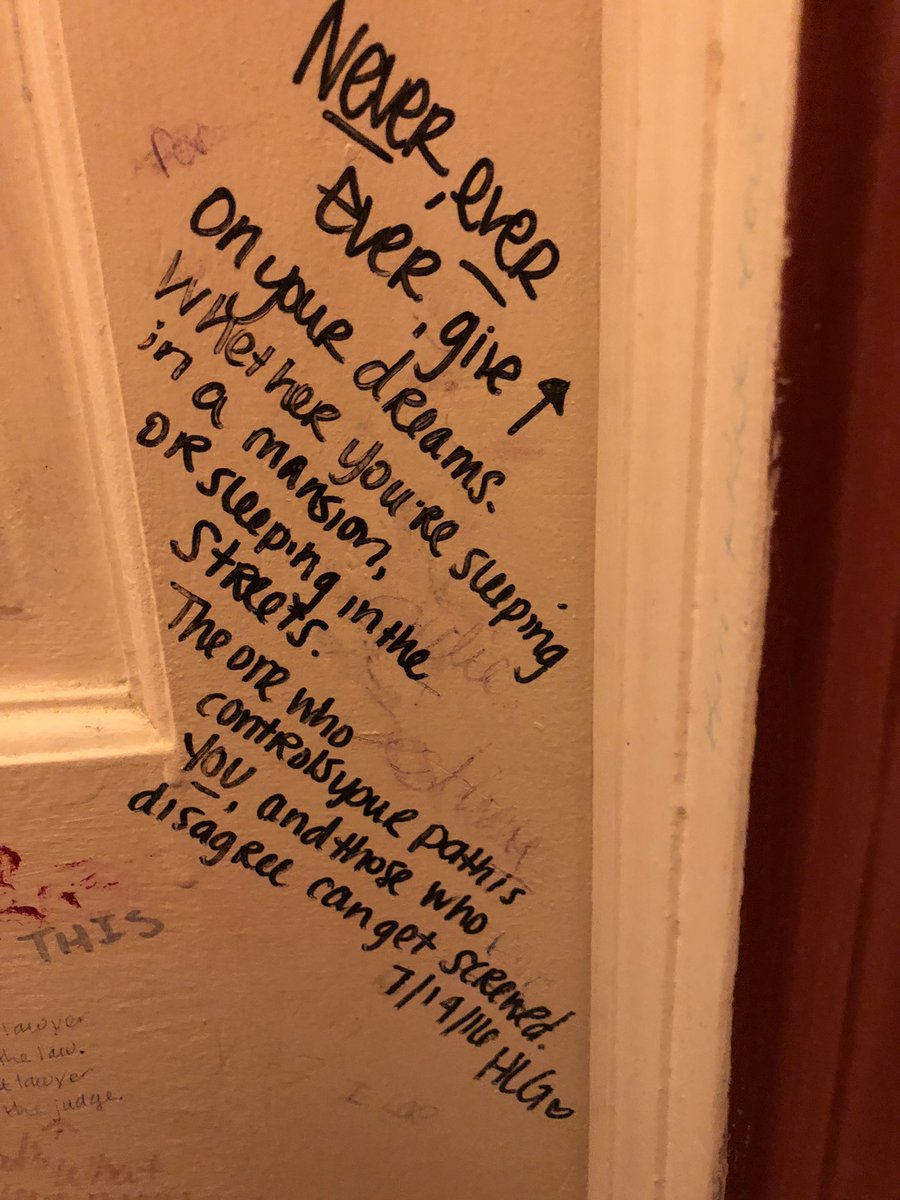 Never, ever
Ever, give ↑
on your dreams.
Whether you're sleeping
in a mansion,
or sleeping in the
streets.
The one who
controls your path is
you, and those who
disagree can get screwed.
7/14/16 HLG♡
THIS
lawyer
the law.
lawyer
the judge.